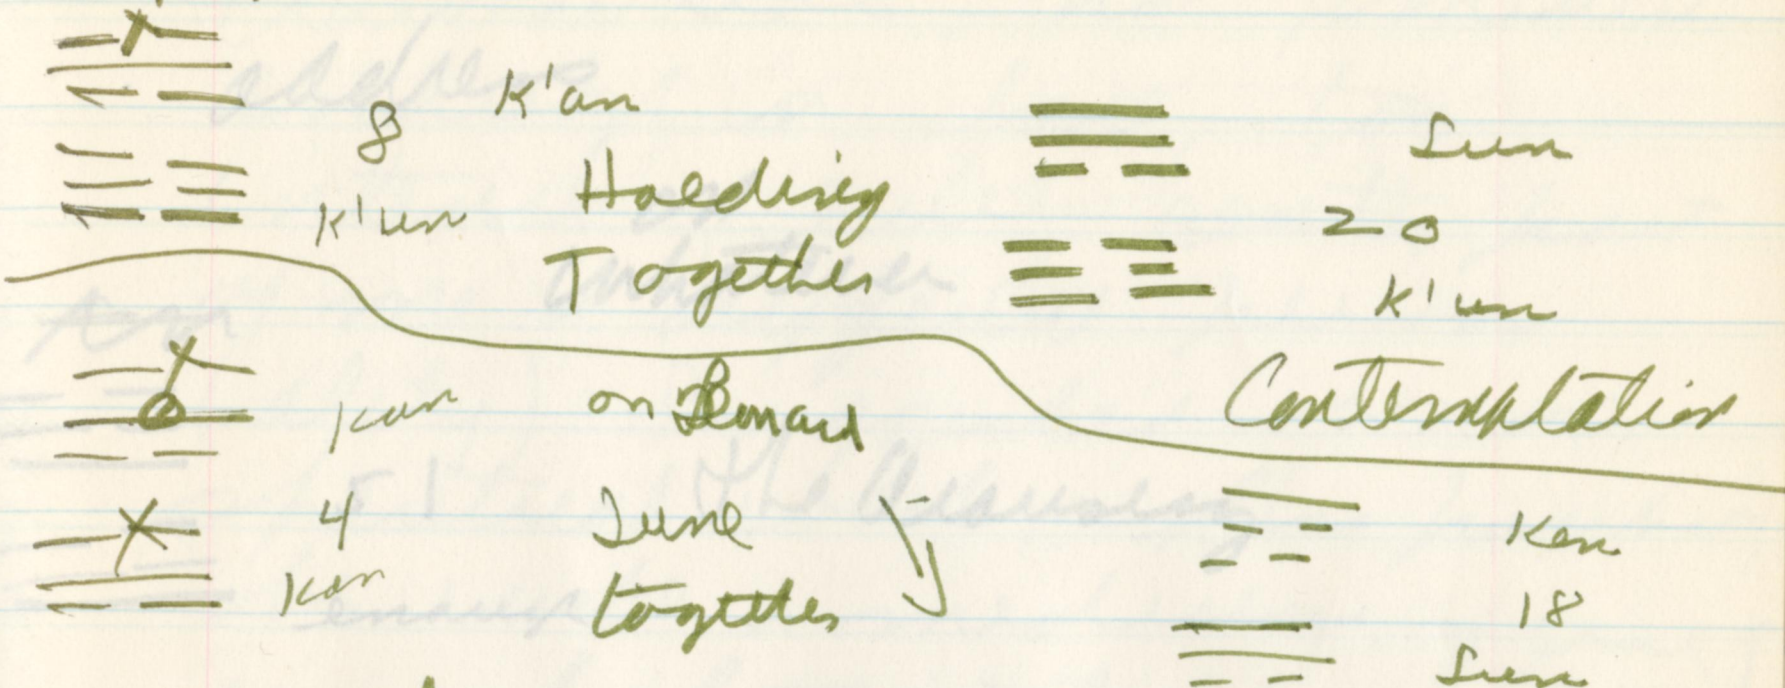 K'an
8
K'un
Holding
Together
Sun
20
K'un
Contemplation
Kan
on Leonard
4
Kan
June
together
Ken
18
Sun